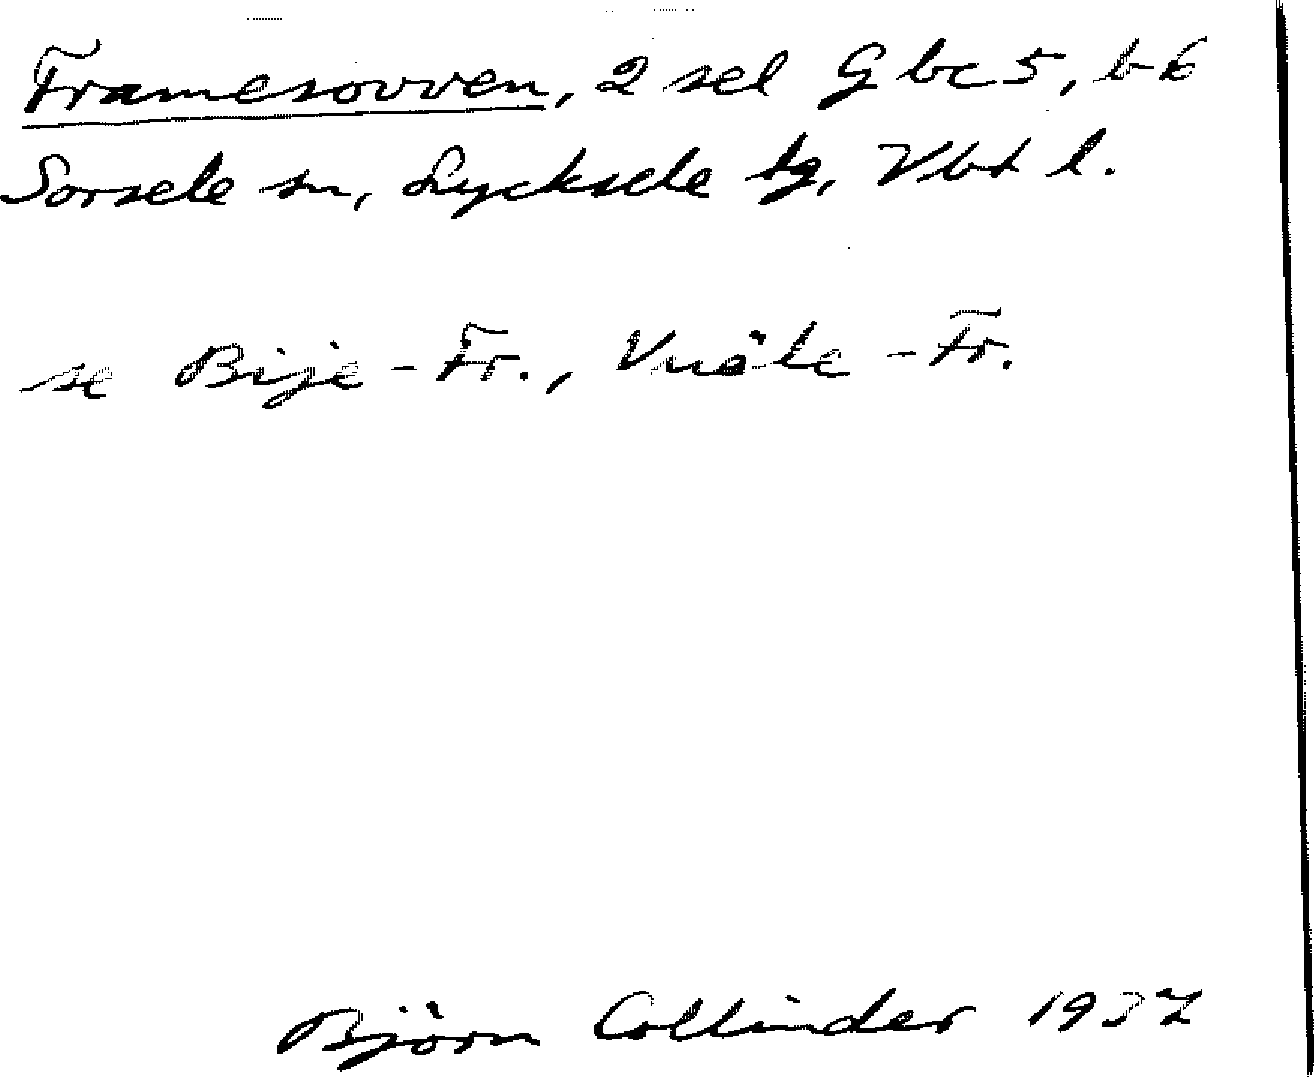 Framesovven, 2 sel G bc 5, b 6
Sorsele sn, Lycksele tg, Vbt l.
se Bije-Fr., Vuöle-Fr.
Björn Collinder 1937